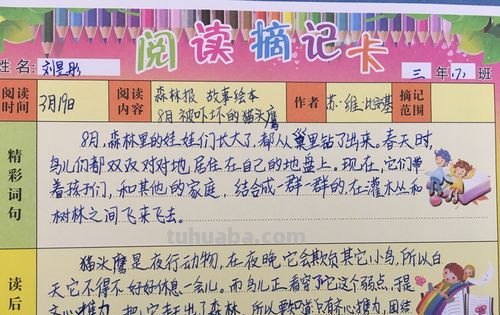 阅读摘记卡
姓名:刘昱彤 三年(7)班
阅读时间 3月19日 阅读内容 森林报 故事绘本 8月被吓坏的猫头鹰 作者 苏·维·比安基 摘记范围
精彩词句
8月,森林里的娃娃们长大了,都从巢里钻了出来。春天时,
鸟儿们都双双对对地居住在自己的地盘上。现在,它们带
着孩子们,和其他的家庭,结合成一群一群的,在灌木丛和
树林之间飞来飞去。
tuhuaba.com
读后
猫头鹰是夜行动物,在夜晚,它会欺负其它小鸟,所以白
天它不得不好好休息一会儿。而鸟儿正看穿了它这个弱点,于是
齐心推力,把它赶出了森林。所以要知道只有齐心推力,团结